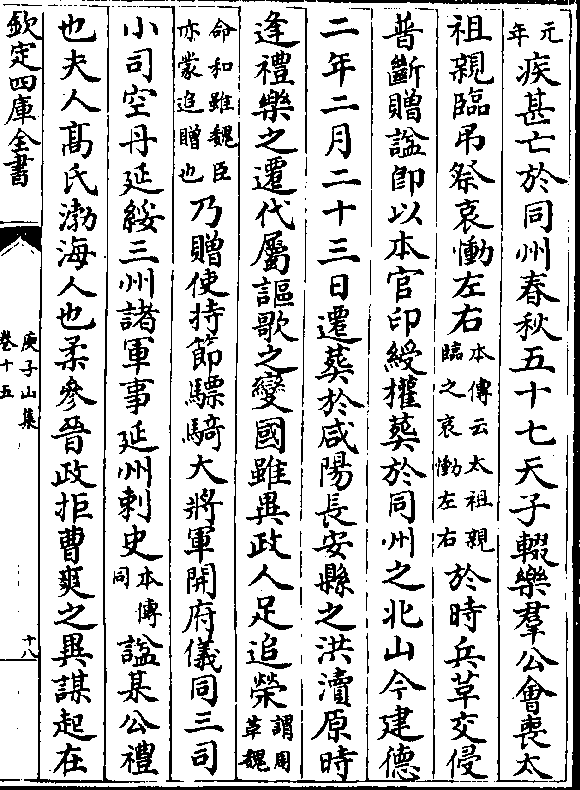 元年疾甚亡於同州春秋五十七天子輟樂羣公會喪太
祖親臨吊祭哀慟左右本傳云太祖親臨之哀慟左右於時兵草交侵
普斷贈諡卽以本官印綬權葬於同州之北山今建德
二年二月二十三日遷葬於咸陽長安縣之洪瀆原時
逢禮樂之遷代屬謳歌之變國雖異政人足追榮謂周革魏
命和雖魏臣亦蒙追贈也乃贈使持節驃騎大將軍開府儀同三司
小司空丹延綏三州諸軍事延州刺史本傳同諡某公禮
也夫人髙氏渤海人也柔參晉政拒曹爽之異謀起在
欽定四庫全書
庾子山集
卷十五
十八